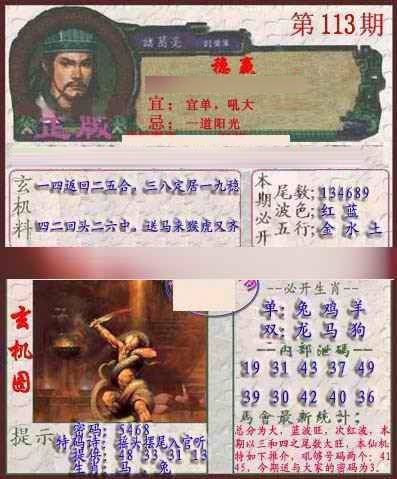 第113期
諸葛亮
稳赢
宜：宜单，吼大
忌：一道阳光
正版
玄机料
一四返回二五合。三八定居一九稳
四二回头二六中。送马来猴虎又齐
本期必开
尾数：134689
波色：红 蓝
五行：金 水 土
玄机图
必开生肖
单：兔 鸡 羊
双：龙 马 狗
内部泄码
19 31 43 37 49
39 30 42 40 36
馬會最新统计：
总分为大，蓝波旺，次红波，本
期以三和四之尾数大旺，本仙机
特如下推介，吼够号码两个：41
45，今期送与大家的密码为3．
提示
密码：5468
特码诗：摇头摆尾入官听
提倍：48 33 31 13
生肖：马 、兔